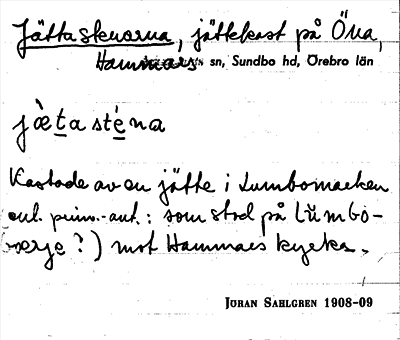 Jättastenarna, jättekast på Öna,
Hammars sn, Sundbo hd, Örebro län
jæ̀ta sté̱na
Kastade av en jätte i Lumbomarken
enl. prim.-ant.: som stod på Lŭmbo-
bærje?) mot Hammars kyrka.
JÖRAN SAHLGREN 1908-09